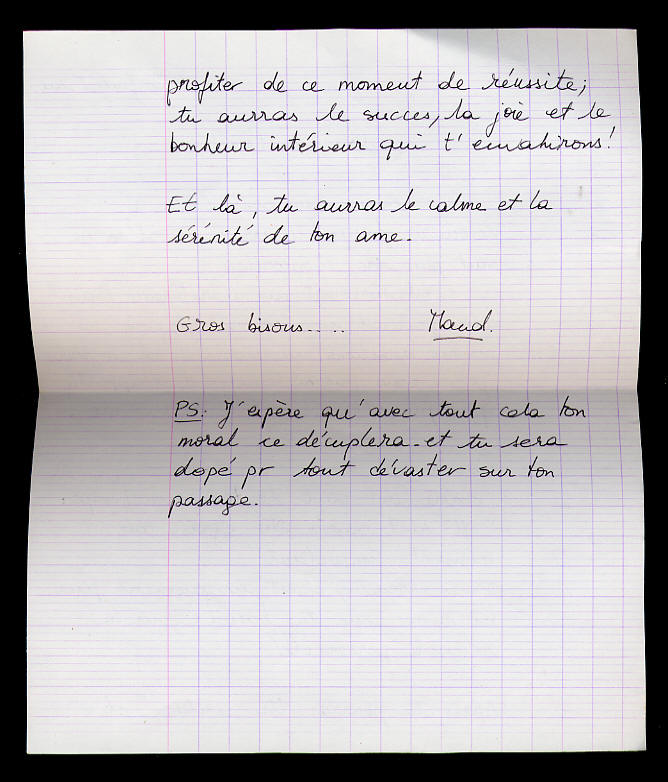 profiter de ce moment de réussite;
tu aurras le succes, la joie et le
bonheur intérieur qui t'envahirons!
Et là, tu aurras le calme et la
sérénité de ton ame.
Gros bisous.... Maud.
PS: J'espère qu'avec tout cela ton
moral ce décuplera et tu sera
dopé pr tout dévaster sur ton
passage.